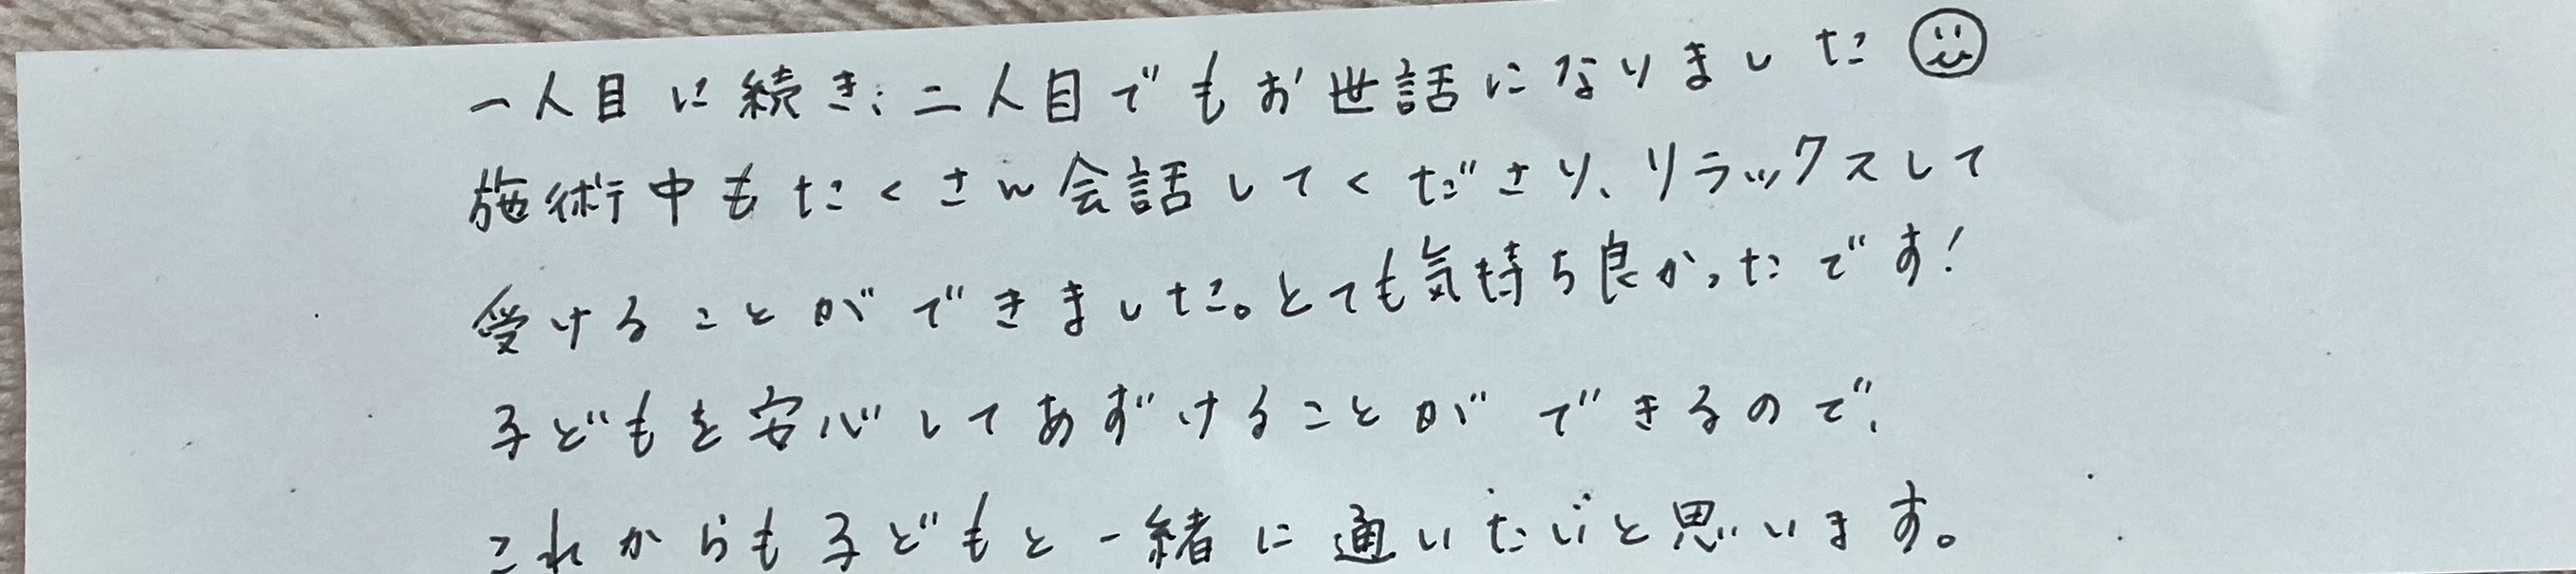 一人目に続き、二人目でもお世話になりました☺
施術中もたくさん会話してくださり、リラックスして
受けることができました。とても気持ち良かったです!
子どもを安心してあずけることができるので、
これからも子どもと一緒に通いたいと思います。